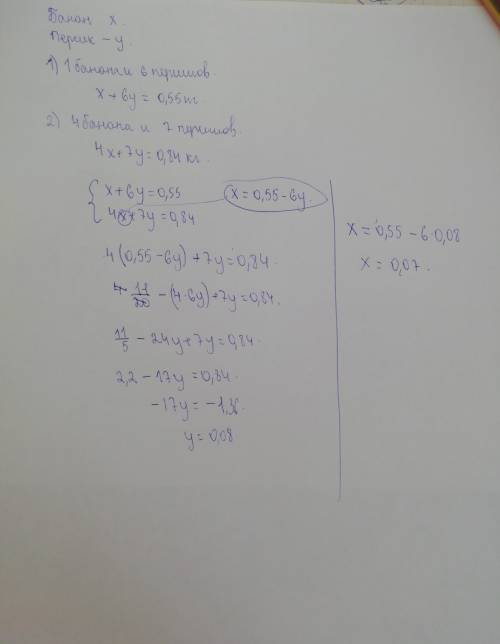 Банан x.
Перик - y.
1) 1 банан и 6 периков.
x + 6y = 0,55 кг
2) 4 банана и 7 периков.
4x + 7y = 0,84 кг.
{ x + 6y = 0,55
x = 0,55 - 6y.
4x + 7y = 0,84
4(0,55 - 6y) + 7y = 0,84.
4 · 11/20 - (4·6y) + 7y = 0,84.
11/5 - 24y + 7y = 0,84.
2,2 - 17y = 0,84.
-17y = -1,36.
y = 0,08
x = 0,55 - 6·0,08
x = 0,07.